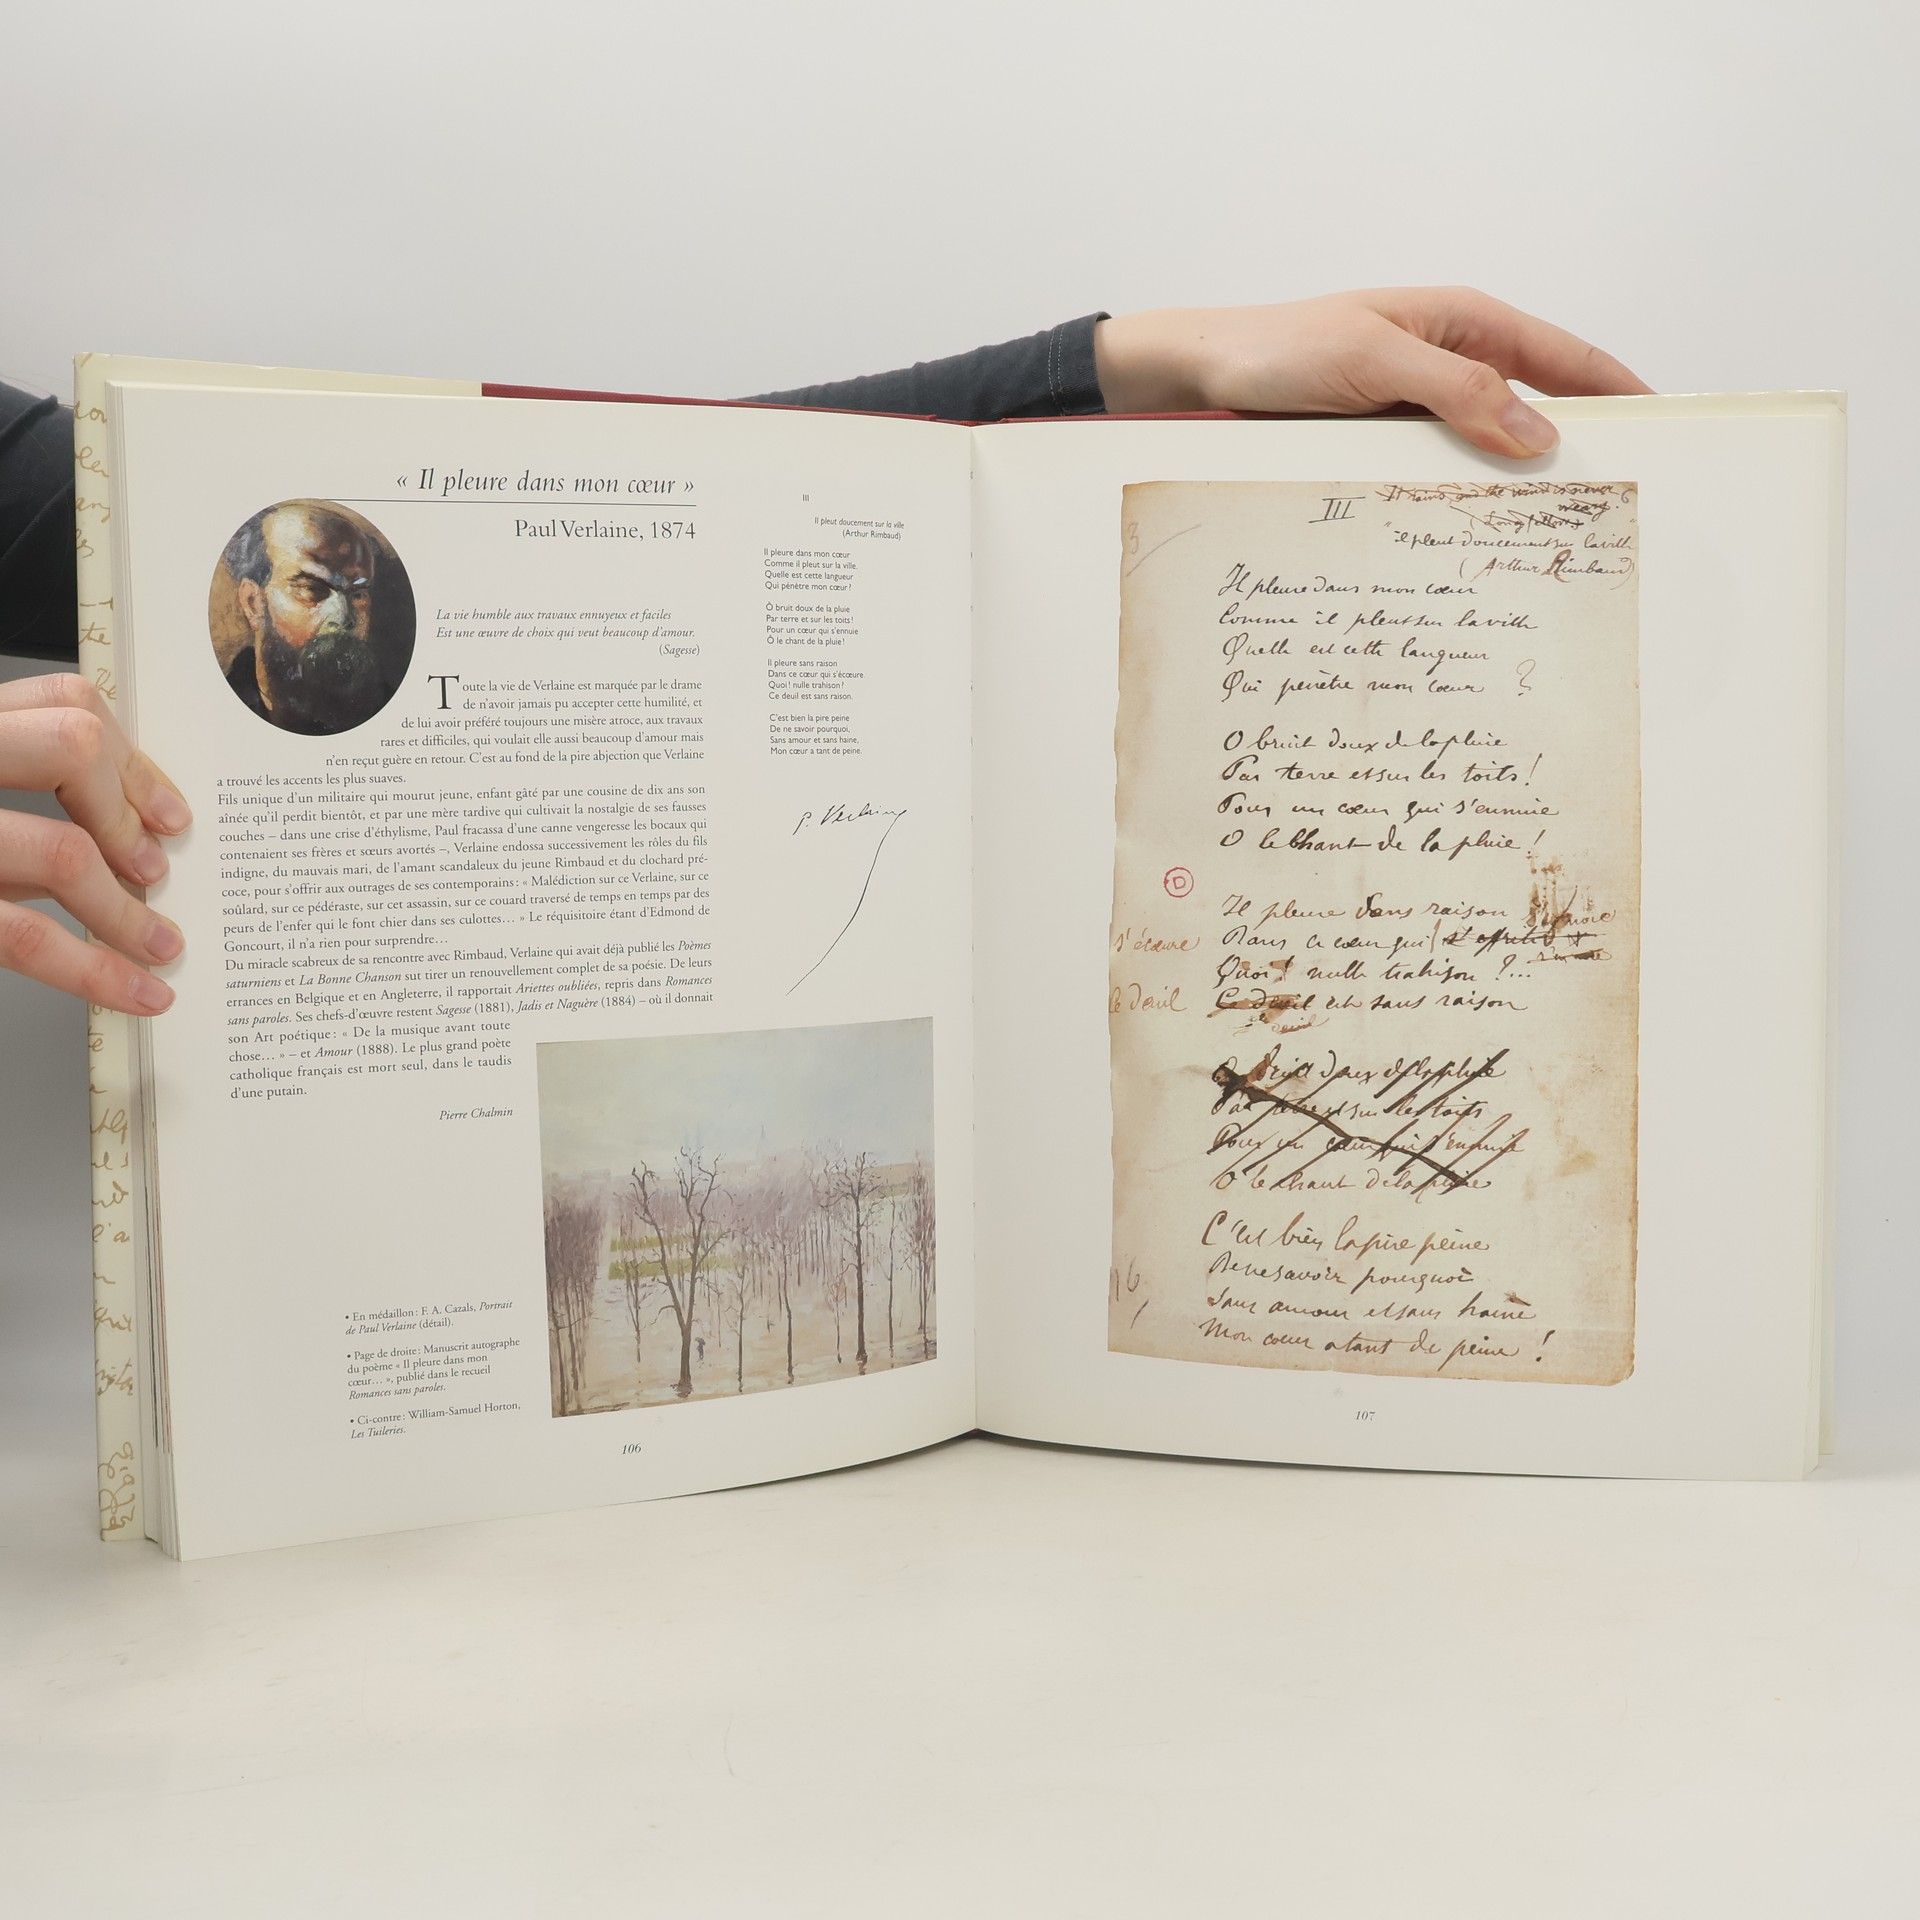 « Il pleure dans mon cœur »
Paul Verlaine, 1874
La vie humble aux travaux ennuyeux et faciles
Est une œuvre de choix qui veut beaucoup d'amour.
(Sagesse)
Toute la vie de Verlaine est marquée par le drame
de n'avoir jamais pu accepter cette humilité, et
de lui avoir préféré toujours une misère atroce, aux travaux
rares et difficiles, qui voulait elle aussi beaucoup d'amour mais
n'en reçut guère en retour. C'est au fond de la pire abjection que Verlaine
a trouvé les accents les plus suaves.
Fils unique d'un militaire qui mourut jeune, enfant gâté par une cousine de dix ans son
aînée qu'il perdit bientôt, et par une mère tardive qui cultivait la nostalgie de ses fausses
couches – dans une crise d'éthylisme, Paul fracassa d'une canne vengeresse les bocaux qui
contenaient ses frères et sœurs avortés –, Verlaine endossa successivement les rôles du fils
indigne, du mauvais mari, de l'amant scandaleux du jeune Rimbaud et du clochard pré-
coce, pour s'offrir aux outrages de ses contemporains : « Malédiction sur ce Verlaine, sur ce
soûlard, sur ce pédéraste, sur cet assassin, sur ce couard traversé de temps en temps par des
peurs de l'enfer qui le font chier dans ses culottes… » Le réquisitoire étant d'Edmond de
Goncourt, il n'a rien pour surprendre…
Du miracle scabreux de sa rencontre avec Rimbaud, Verlaine qui avait déjà publié les Poèmes
saturniens et La Bonne Chanson sut tirer un renouvellement complet de sa poésie. De leurs
errances en Belgique et en Angleterre, il rapportait Ariettes oubliées, repris dans Romances
sans paroles. Ses chefs-d'œuvre restent Sagesse (1881), Jadis et Naguère (1884) – où il donnait
son Art poétique : « De la musique avant toute
chose… » – et Amour (1888). Le plus grand poète
catholique français est mort seul, dans le taudis
d'une putain.
Pierre Chalmin
• En médaillon : F. A. Cazals, Portrait
de Paul Verlaine (détail).
• Page de droite : Manuscrit autographe
du poème « Il pleure dans mon
cœur… », publié dans le recueil
Romances sans paroles.
• Ci-contre : William-Samuel Horton,
Les Tuileries.
106
III
Il pleut doucement sur la ville
(Arthur Rimbaud)
Il pleure dans mon cœur
Comme il pleut sur la ville.
Quelle est cette langueur
Qui pénètre mon cœur ?
Ô bruit doux de la pluie
Par terre et sur les toits !
Pour un cœur qui s'ennuie
Ô le chant de la pluie !
Il pleure sans raison
Dans ce cœur qui s'écœure.
Quoi ! nulle trahison ?
Ce deuil est sans raison.
C'est bien la pire peine
De ne savoir pourquoi,
Sans amour et sans haine,
Mon cœur a tant de peine.
P. Verlaine
3
III
It rains, and the wind is never
weary.
(Longfellow)
"il pleut doucement sur la ville"
(Arthur Rimbaud)
Il pleure dans mon cœur
Comme il pleut sur la ville
Quelle est cette langueur
Qui pénètre mon cœur ?
O bruit doux de la pluie
Par terre et sur les toits !
Pour un cœur qui s'ennuie
O le chant de la pluie !
D
Il pleure sans raison
s'écœure Dans ce cœur qui
Quoi ! nulle trahison ?...
le deuil Ce deuil est sans raison
O bruit doux de la pluie
Par terre et sur les toits
Pour un cœur qui s'ennuie
O le chant de la pluie
C'est bien la pire peine
De ne savoir pourquoi
Sans amour et sans haine
Mon cœur a tant de peine !
16
107